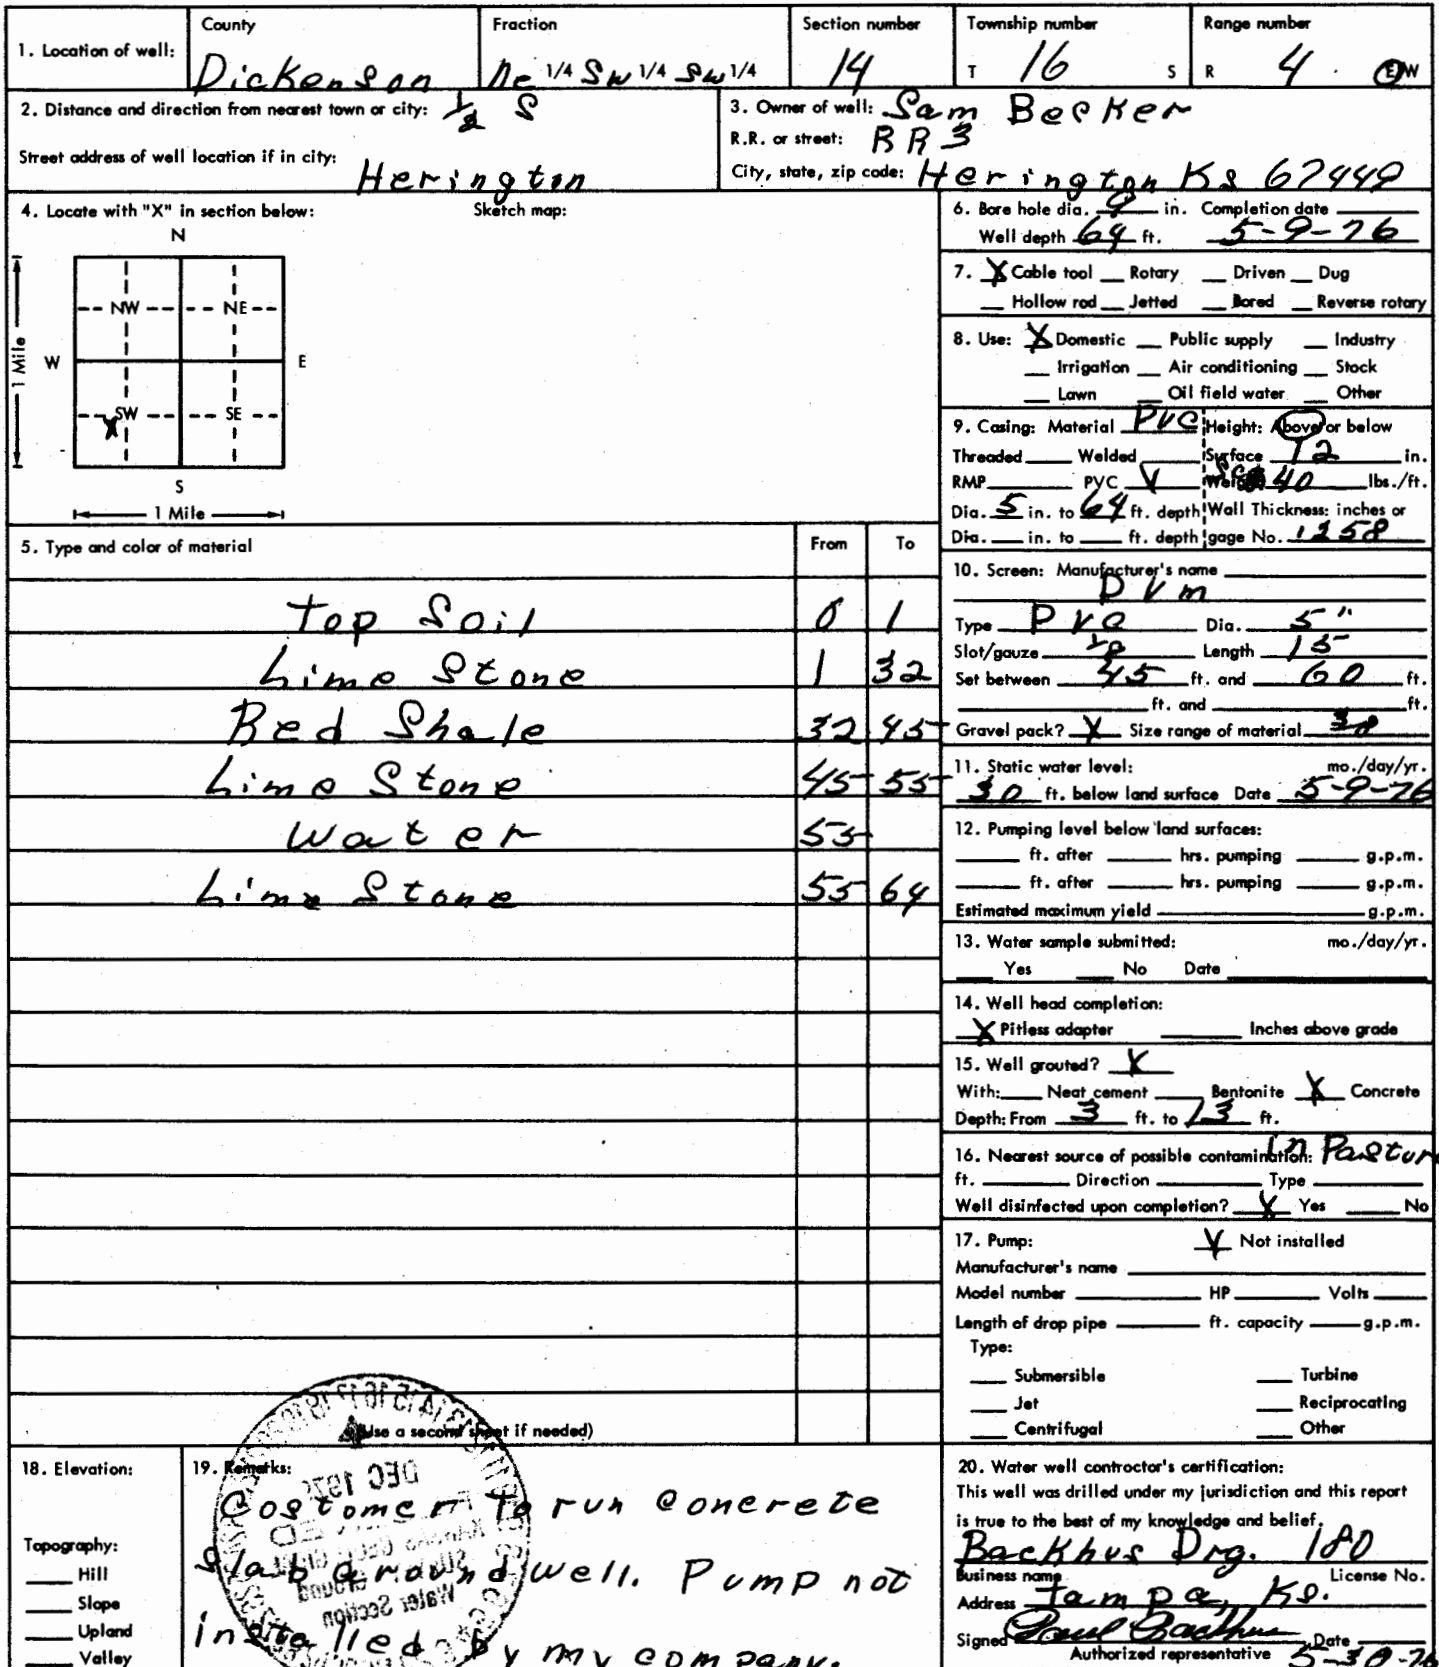 1. Location of well: County Dickenson Fraction Ne 1/4 Sw 1/4 Sw 1/4 Section number 14 Township number T 16 S Range number R 4 E W
2. Distance and direction from nearest town or city: 1/2 S
Street address of well location if in city: Herington
3. Owner of well: Sam Becker
R.R. or street: RR3
City, state, zip code: Herington Ks 67449
4. Locate with "X" in section below: Sketch map:
N
NW NE
W E
1 Mile
SW SE
X
S
1 Mile
5. Type and color of material From To
Top Soil 0 1
Lime Stone 1 32
Red Shale 32 45
Lime Stone 45 55
Water 55
Lime Stone 55 64
(Use a second sheet if needed)
6. Bore hole dia. 9 in. Completion date
Well depth 64 ft. 5-9-76
7. X Cable tool Rotary Driven Dug
Hollow rod Jetted Bored Reverse rotary
8. Use: X Domestic Public supply Industry
Irrigation Air conditioning Stock
Lawn Oil field water Other
9. Casing: Material PVC Height: Above or below
Threaded Welded Surface 12 in.
RMP PVC Weight 40 lbs./ft.
Dia. 5 in. to 64 ft. depth Wall Thickness: inches or
Dia. in. to ft. depth gage No. .1258
10. Screen: Manufacturer's name
DVM
Type PVC Dia. 5"
Slot/gauze 1/8 Length 15
Set between 45 ft. and 60 ft.
ft. and ft.
Gravel pack? X Size range of material
11. Static water level: mo./day/yr.
30 ft. below land surface Date 5-9-76
12. Pumping level below land surfaces:
ft. after hrs. pumping g.p.m.
ft. after hrs. pumping g.p.m.
Estimated maximum yield g.p.m.
13. Water sample submitted: mo./day/yr.
Yes No Date
14. Well head completion:
X Pitless adapter Inches above grade
15. Well grouted? X
With: Neat cement Bentonite X Concrete
Depth: From 3 ft. to 13 ft.
16. Nearest source of possible contamination: in Pastur
ft. Direction Type
Well disinfected upon completion? X Yes No
17. Pump: X Not installed
Manufacturer's name
Model number HP Volts
Length of drop pipe ft. capacity g.p.m.
Type:
Submersible Turbine
Jet Reciprocating
Centrifugal Other
18. Elevation:
Topography:
Hill
Slope
Upland
Valley
19. Remarks:
Costomer To run concrete
Slab around well. Pump not
installed by my company.
DEC 1976
Water Section
20. Water well contractor's certification:
This well was drilled under my jurisdiction and this report
is true to the best of my knowledge and belief.
Backhus Drg. 180
Business name License No.
Address Tampa, Ks.
Signed Paul Backhus Date
Authorized representative 5-30-76